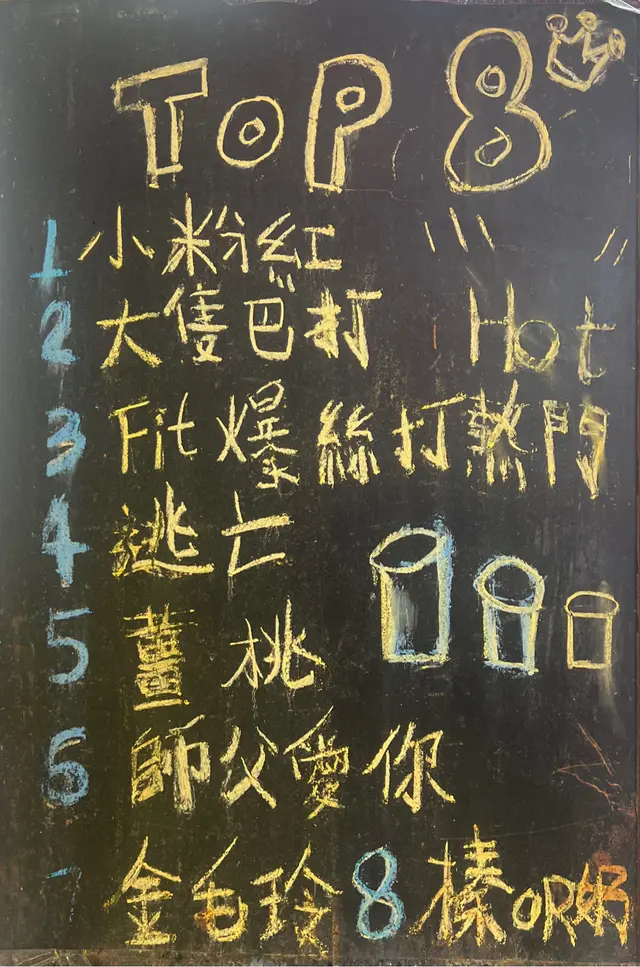 TOP 8
1 小粉紅
2 大隻巴打 Hot
3 Fit爆絲打熱門
4 逃亡
5 薑桃
6 師父愛你
7 金毛玲 8 榛OR奶